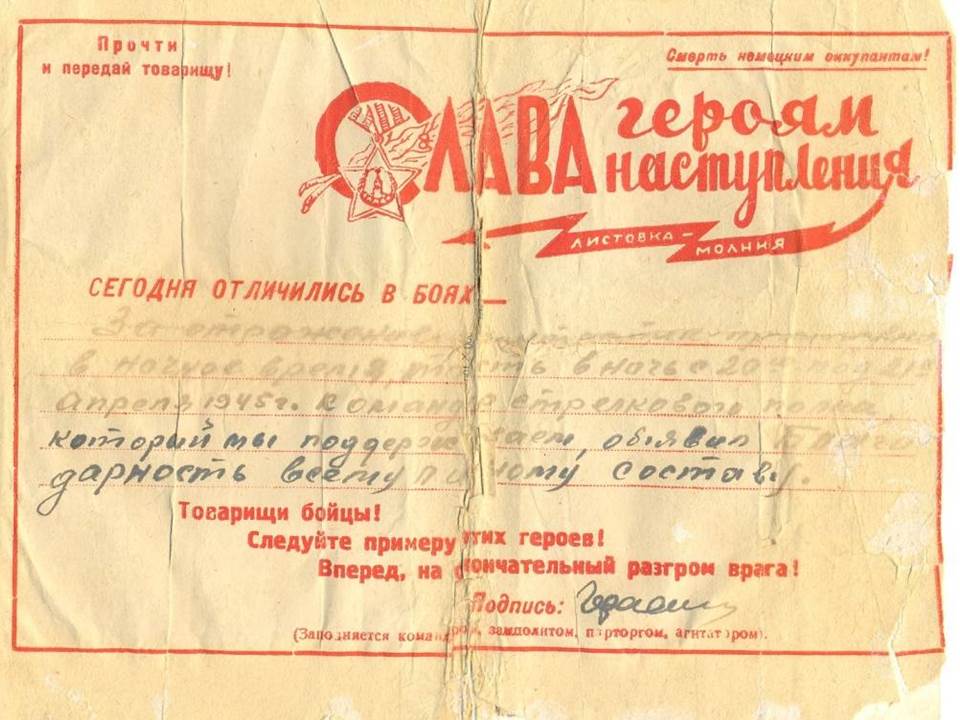 Прочти
и передай товарищу!
Смерть немецким оккупантам!
СЛАВА героям
наступления
ЛИСТОВКА – МОЛНИЯ
СЕГОДНЯ ОТЛИЧИЛИСЬ В БОЯХ —
За отражение
в ночное время, в ночь с 20 на
Апреля 1945 г. Командир стрелкового полка,
который мы поддерживаем, объявил Благо
дарность всему личному составу.
Товарищи бойцы!
Следуйте примеру этих героев!
Вперед, на окончательный разгром врага!
Подпись:
(Заполняется командиром, замполитом, парторгом, агитатором).